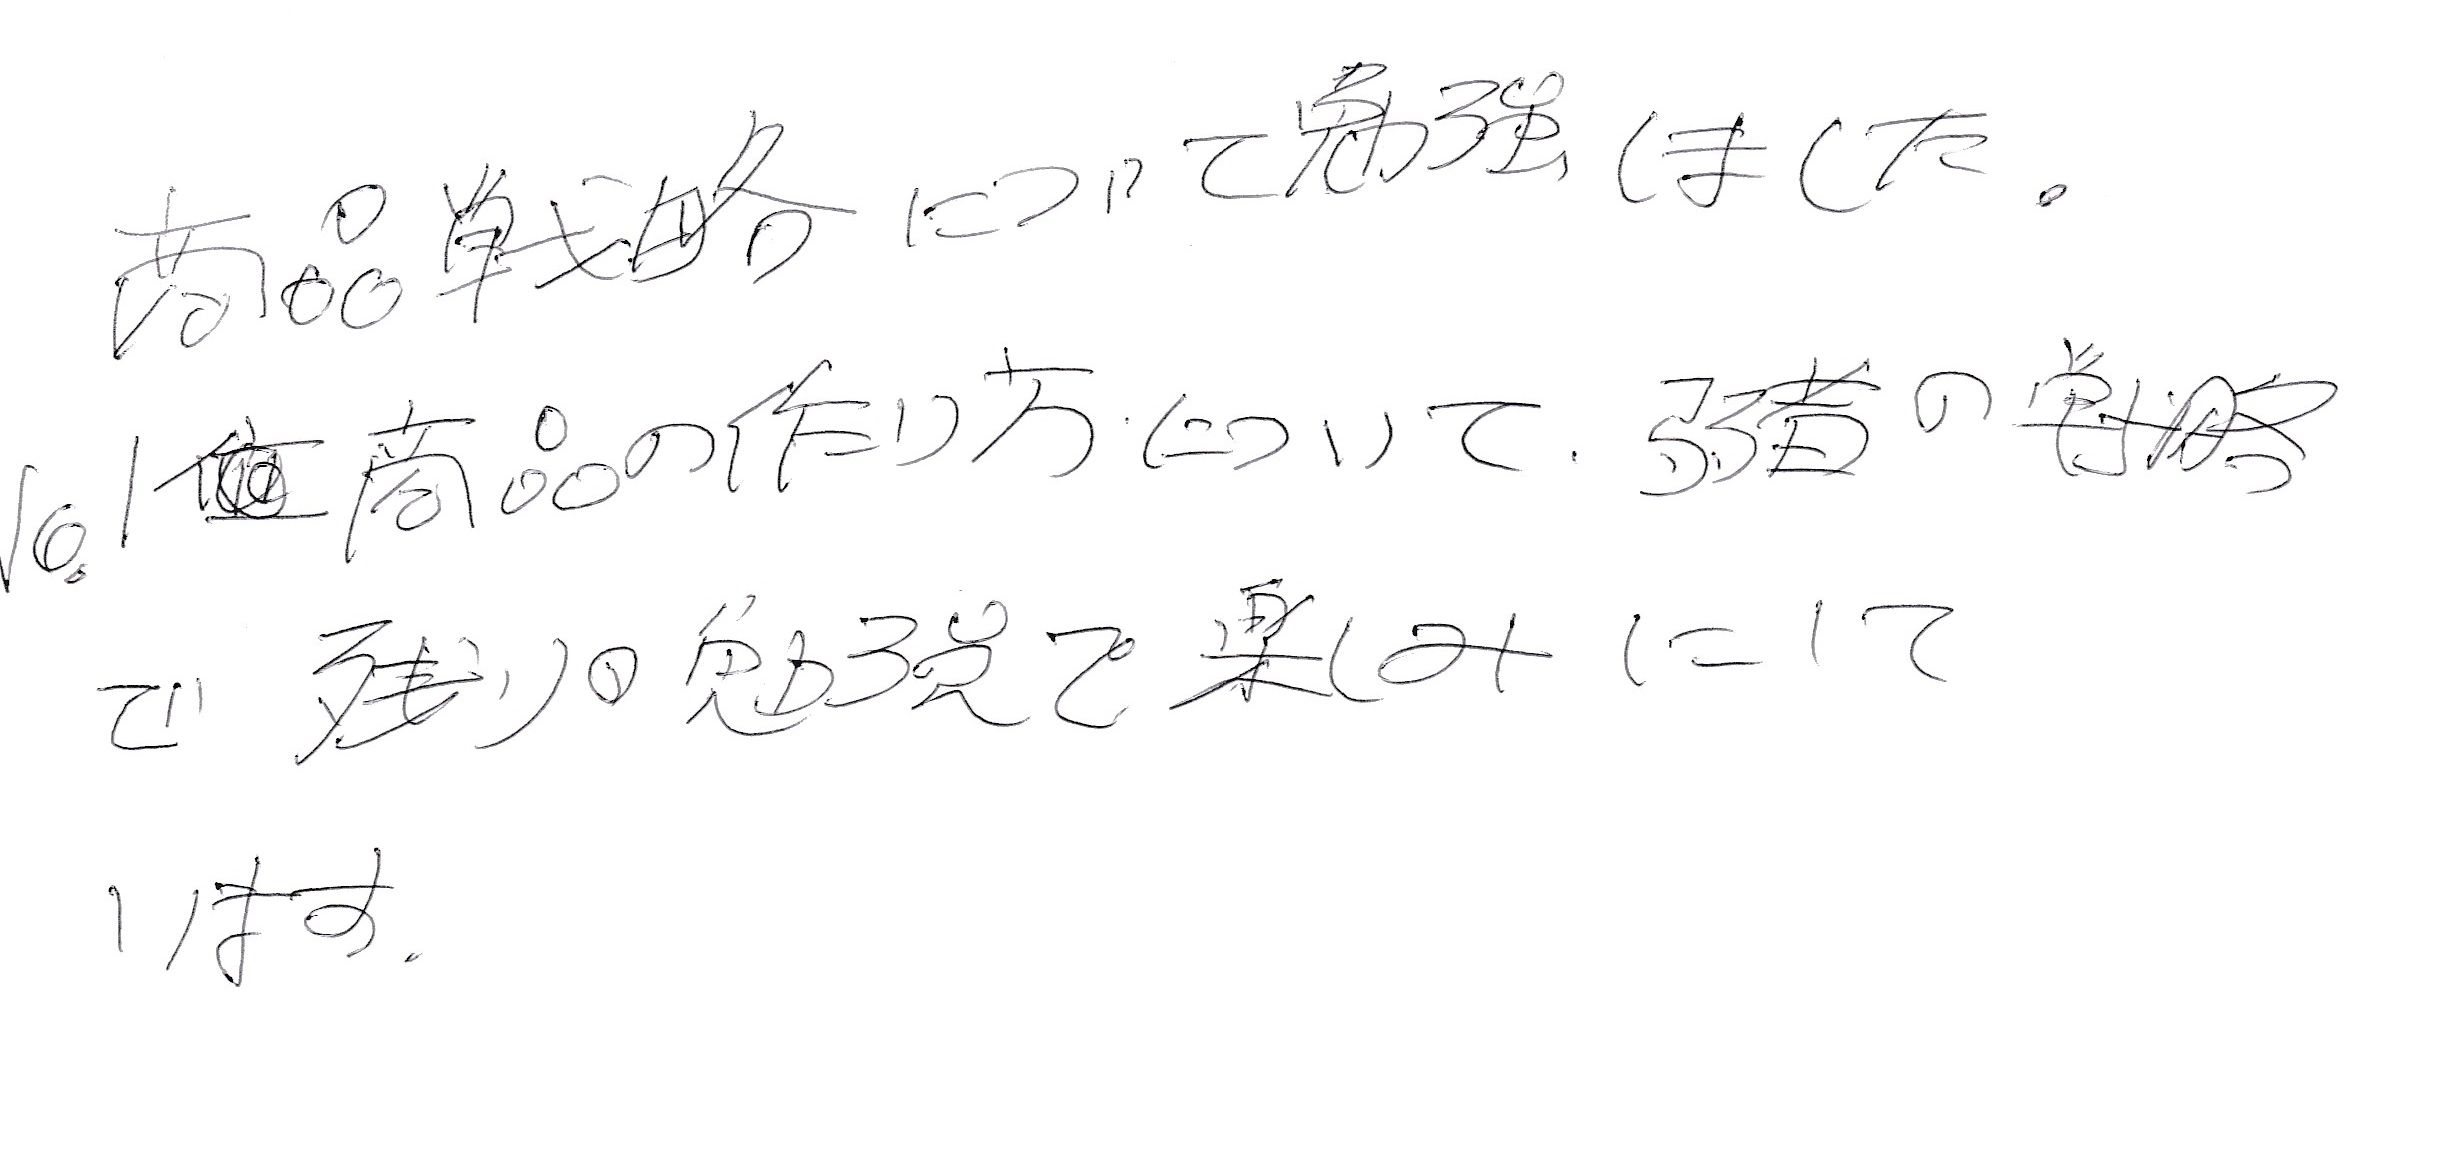 商品戦略について勉強しました。
No.1商品の作り方について、弱者の戦略
で残りの勉強で楽しみにして
います。